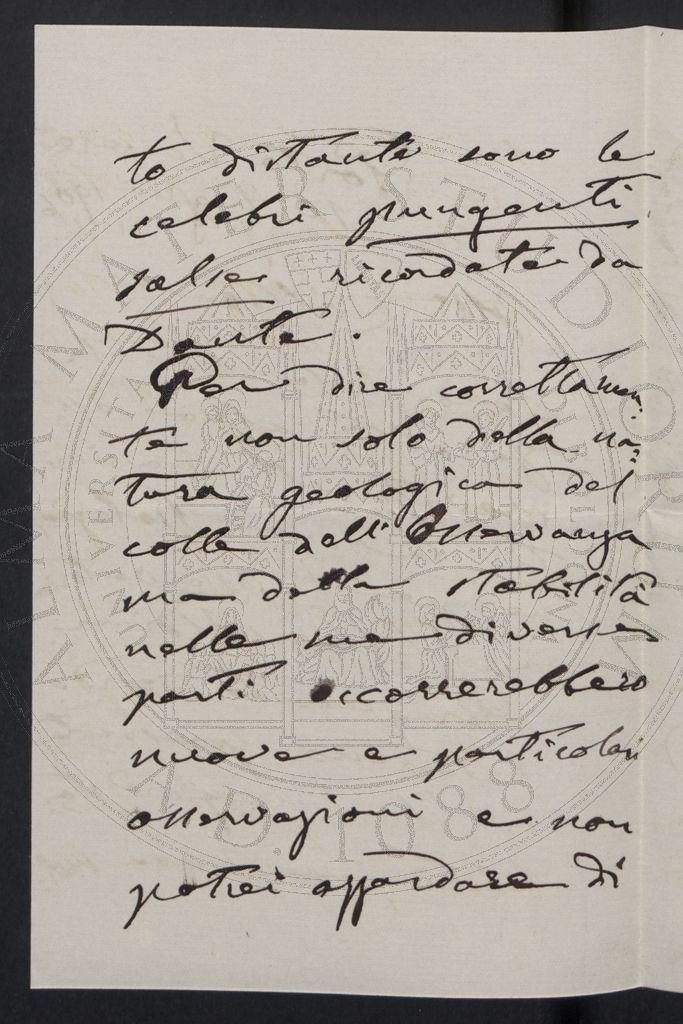 to distante sono le
celebri pungenti
salse ricordate da
Dante.
Per dire correttamen=
te non solo della na=
tura geologica del
colle dell'Osservanza
ma della stabilità
nelle sue diverse
parti occorrerebbero
nuove e particolari
osservazioni e non
potrei azzardare di
ALMA MATER STUDIORUM
UNIVERSITA
A.D. 1088